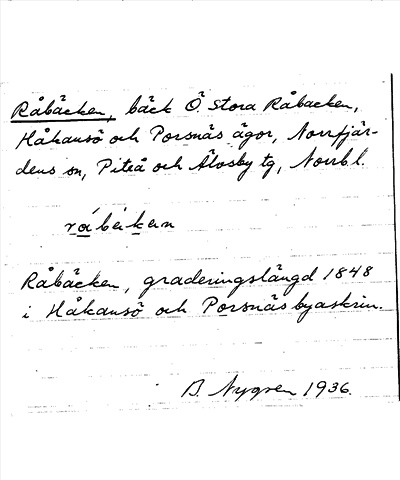 Råbäcken, bäck Ö. Stora Råbacken,
Håkansö och Porsnäs ägor, Norrfjär-
dens sn, Piteå och Älvsby tg, Norrb l.
Råbäcken, graderingslängd 1848
i Håkansö och Porsnäs byaskrin.
B. Nygren 1936.